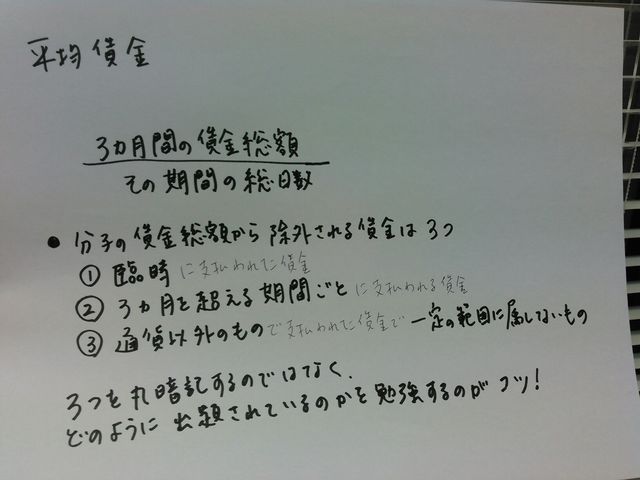 平均賃金
3カ月間の賃金総額
その期間の総日数
● 分子の賃金総額から除外される賃金は3つ
① 臨時に支払われた賃金
② 3カ月を超える期間ごとに支払われる賃金
③ 通貨以外のもので支払われた賃金で一定の範囲に属しないもの
3つを丸暗記するのではなく、
どのように出題されているのかを勉強するのがコツ!